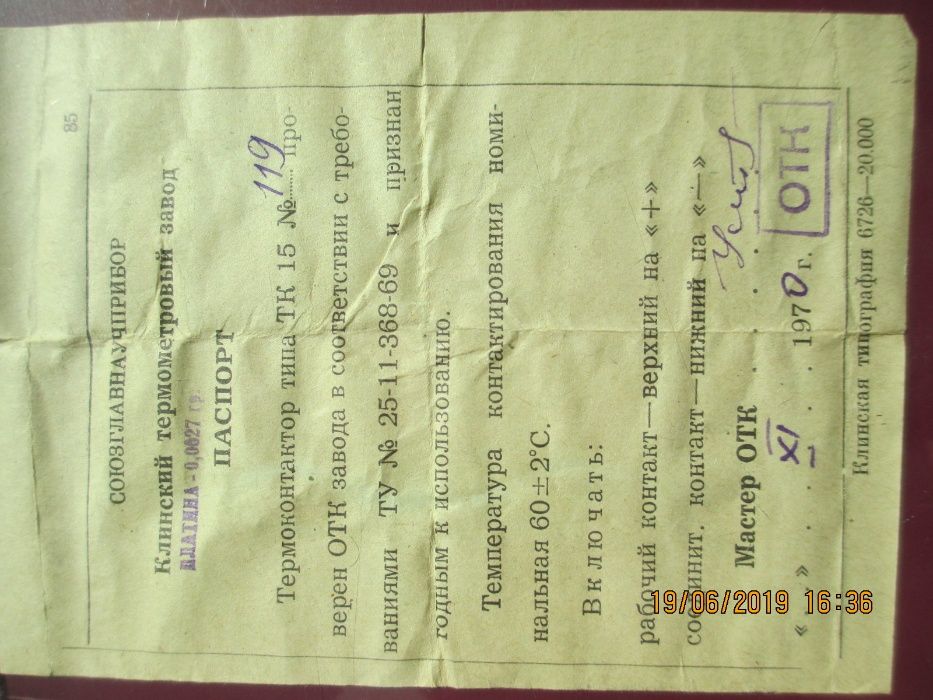 85
СОЮЗГЛАВНАУЧПРИБОР
Клинский термометровый завод
ПЛАТИНА - 0,0627 гр.
ПАСПОРТ
Термоконтактор типа ТК 15 № 119 про-
верен ОТК завода в соответствии с требо-
ваниями ТУ № 25-11-368-69 и признан
годным к использованию.
Температура контактирования номи-
нальная 60±2°С.
Включать:
рабочий контакт—верхний на «+»
соединит. контакт—нижний на «—»
Мастер ОТК
« » XI 1970 г. ОТК
Клинская типография 6726—20.000
19/06/2019 16:36